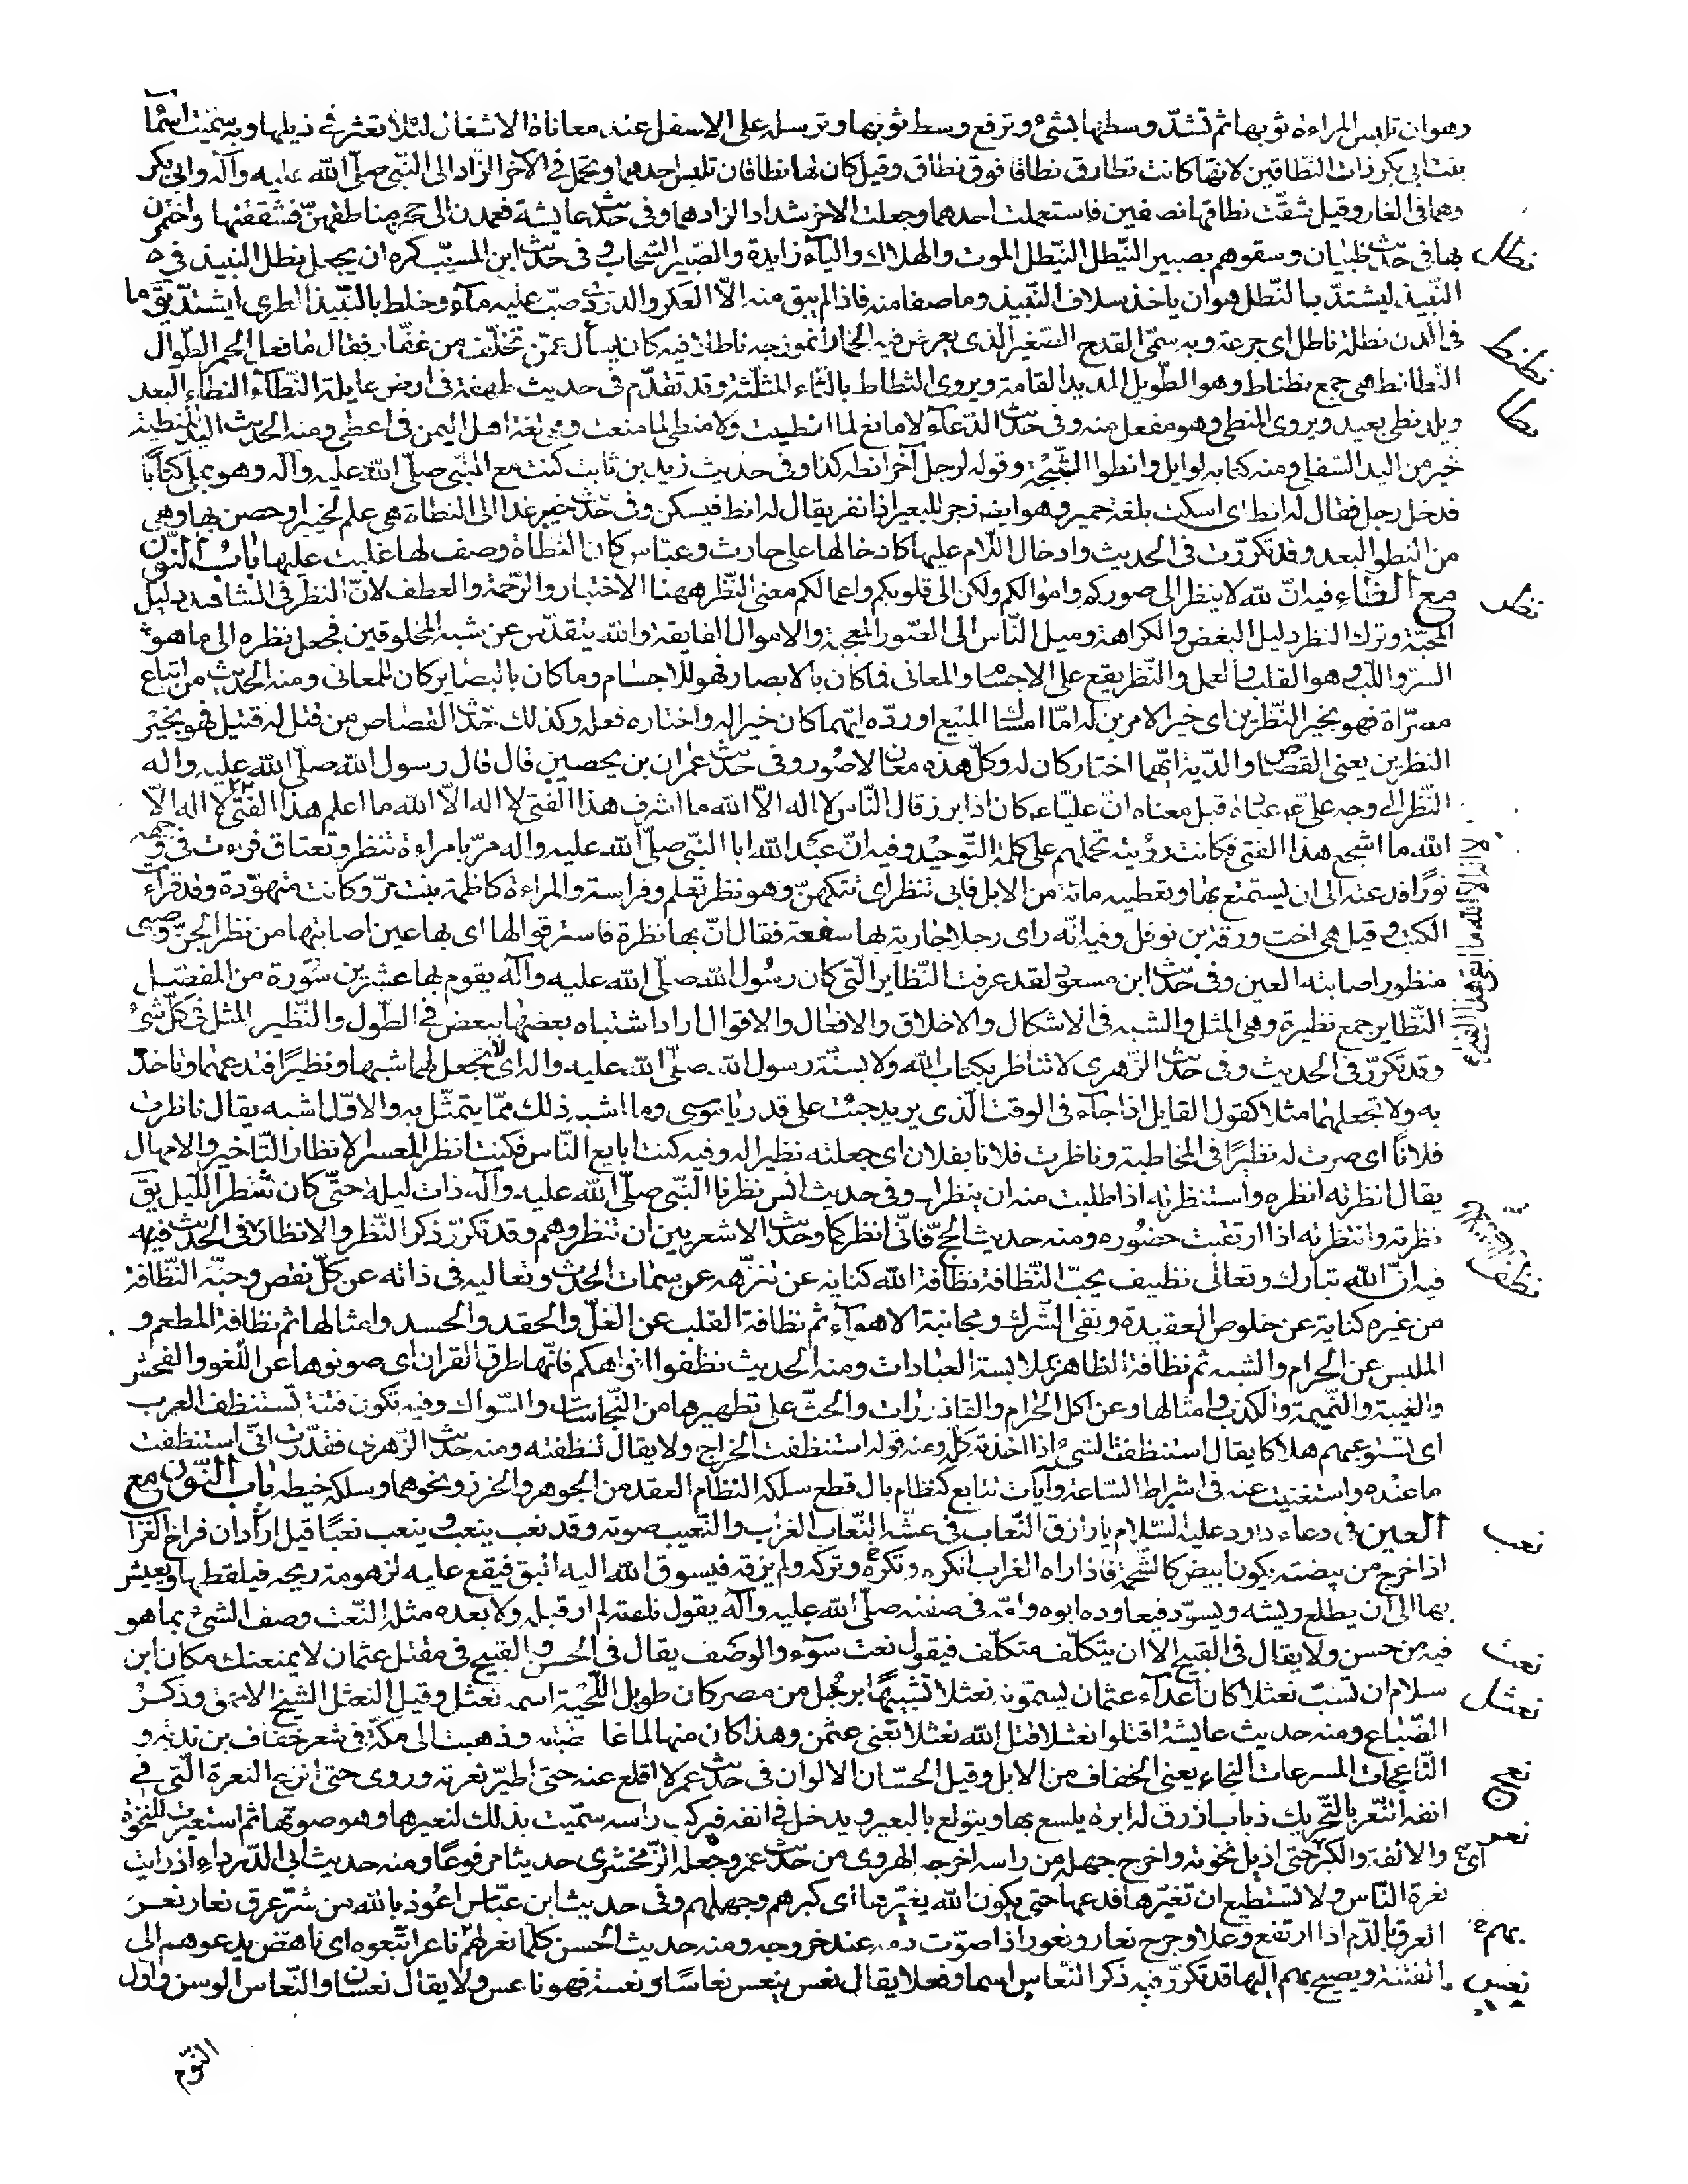 وهو ان تلبس المراءة ثوبها ثم تشدّ وسطها بشئ وترفع وسط ثوبها وترسله على الاسفل عند معاناة الاشغال لئلا تعثر فى ذيلها وبه سميت اسما
بنت ابى بكر ذات النطاقين لانها كانت تطارق نطاقا فوق نطاق وقيل كان لها نطاقان تلبس احدهما وتحمل فى الآخر الزاد الى النبى صلّى الله عليه وآله وابى بكر
وهما فى الغار وقيل شقّت نطاقها نصفين فاستعملت احدهما وجعلت الاخر شدادا لزادهما وفى حديث عايشة فعمدن الى حجز مناطقهنّ فشققنها واختمرن
نطل بها فى حديث ظبيان وسقوهم بصبير النّيطل النيطل الموت والهلاك والياء زايدة والصّبير السّحاب وفى حديث ابن المسيّب كره ان يجعل نطل النبيذ فى
النّبيذ ليشتدّ بالنّطل هو ان ياخذ سلاف النّبيذ وما صفا منه فاذا لم يبق منه الّا العكر والدردى صبّ عليه ماء وخلط بالنّبيذ الطرى ليشتدّ يق ما
نطنط فى الدن نطلة ناطل اى جرعة وبه سمّى القدح الصّغير الّذى يعرض فيه الخمار انموزجه ناطلا فيه كان يسأل عمّن تخلّف من غفار فقال ما فعل الحمر الطّوال
النّطانط هى جمع نطناط وهو الطّويل المديد القامة ويروى الثطاط بالثّاء المثلّثة وقد تقدّم فى حديث طهفة فى ارض غايلة النّطاء النطاء البعد
نطا وبلد نطى بعيد ويروى المنطى وهو مفعل منه وفى حديث الدّعاء لا مانع لما انطيت ولا منطى لما منعت وهى لغة اهل اليمن فى اعطى ومنه الحديث اليد المنطية
خير من اليد السّفلى ومنه كتابه لوايل وانطوا الثّبجة وقوله لرجل آخر انطه كذا وفى حديث زيد بن ثابت كنت مع النّبى صلّى الله عليه وآله وهو يملى كتابا
فدخل رجل فقال له انط اى اسكت بلغة حمير وهو ايضه زجر للبعير اذا نفر يقال له انط فيسكن وفى حديث خيبر غدا الى النطاة هى علم لخيبر او حصن بها وهى
من النطو البعد وقد تكرّرت فى الحديث وادخال اللّام عليها كادخالها على حارث وعبّاس كان النطاة وصف لها غلبت عليها باب النّون
نظر مع الظاء فيه انّ الله لا ينظر الى صوركم واموالكم ولكن الى قلوبكم واعمالكم معنى النّظر ههنا الاختيار والرّحمة والعطف لانّ النظر فى الشاهد دليل
المحبّة وترك النظر دليل البغض والكراهة وميل النّاس الى الصّور المعجبة والاموال الفايقة والله يتقدّس عن شبه المخلوقين فجعل نظره الى ما هو
السرّ واللّب وهو القلب والعمل والنّظر يقع على الاجسام والمعانى فما كان بالابصار فهو للاجسام وما كان بالبصاير كان للمعانى ومنه الحديث من ابتاع
مصرّاة فهو بخير النّظرين اى خير الامرين له امّا امساك المبيع او ردّه ايّهما كان خيرا له واختاره فعله وكذلك حديث القصاص من قتل له قتيل فهو بخير
النظرين يعنى القصاص والدّية ايّهما اختار كان له وكلّ هذه معان لا صور وفى حديث عمران بن حصين قال قال رسول الله صلّى الله عليه وآله
النّظر الى وجه علىّ عبادة قيل معناه انّ عليّا كان اذا برز قال النّاس لا اله الّا الله ما اشرف هذا الفتى لا اله الّا الله ما اعلم هذا الفتى لا اله الّا
الله ما اشجع هذا الفتى فكانت رؤيته تحملهم على كلمة التّوحيد وفيه انّ عبد الله ابا النّبى صلّى الله عليه وآله مرّ بامراءة تنظر وتعتاف فرءت فى وجهه
لا اله الا الله ما اتقى هذا الفتى
نورا فدعته الى ان يستمتع بها وتعطيه مائة من الابل فابى تنظر اى تتكهنّ وهو نظر تعلّم وفراسة والمراءة كاظمة بنت مرّ وكانت متهوّدة وقد قراءت
الكتب وقيل هى اخت ورقة بن نوفل وفيه انّه راى رجلا جارية بها سفعة فقال انّ بها نظرة فاسترقوا لها اى بها عين اصابتها من نظر الجنّ وصبى
منظور اصابته العين وفى حديث ابن مسعود لقد عرفت النّظاير الّتى كان رسول الله صلّى الله عليه وآله يقوم بها عشرين سورة من المفصّل
النّظاير جمع نظيرة وهى المثل والشبه فى الاشكال والاخلاق والافعال والاقوال اراد اشتباه بعضها ببعض فى الطّول والنّظير المثل فى كلّ شئ
وقد تكرّر فى الحديث وفى حديث الزّهرى لا تناظر بكتاب الله ولا بسنّة رسول الله صلّى الله عليه وآله اى لا تجعل لهما شبها ونظيرا فتدعهما وتاخذ
به ولا تجعلهما مثلا كقول القايل اذا جاء فى الوقت الّذى يريد جئت على قدر يا موسى وما اشبه ذلك ممّا يتمثّل به والاوّل اشبه يقال ناظرت
فلانا اى صرت له نظيرا فى المخاطبة وناظرت فلانا بفلان اى جعلته نظيرا له وفيه كنت ابايع النّاس فكنت انظر المعسر الانظار التّاخير والامهال
يقال انظرته انظره واستنظرته اذا طلبت منه ان ينظرك وفى حديث انس نظرنا النّبى صلّى الله عليه وآله ذات ليلة حتّى كان شطر اللّيل يق
نظرته وانتظرته اذا ارتقبت حضوره ومنه حديث الحجّ فانّى انظركما وحديث الاشعريين ان تنظروهم وقد تكرّر ذكر النّظر والانتظار فى الحديث فيه
نظف فيه انّ الله تبارك وتعالى نظيف يحبّ النّظافة نظافة الله كناية عن تنزّهه عن سمات الحدث وتعاليه فى ذاته عن كلّ نقص وحبّه النّظافة
من غيره كناية عن خلوص العقيدة ونفى الشّرك ومجانبة الاهواء ثم نظافة القلب عن الغلّ والحقد والحسد وامثالها ثم نظافة المطعم و
الملبس عن الحرام والشبه ثم نظافة الظاهر بملابسة العبادات ومنه الحديث نظفوا افواهكم فانّها طرق القران اى صونوها عن اللّغو والفحش
والغيبة والنّميمة والكذب وامثالها وعن اكل الحرام والقاذورات والحثّ على تطهيرها من النّجاسات والسّواك وفيه تكون فتنة تستنظف العرب
اى تستوعبهم هلاكا يقال استنظفت الشئ اذا اخذته كلّه ومنه قوله استنظفت الخراج ولا يقال نظفته ومنه حديث الزّهرى فقدّرت انّى استنظفت
ما عنده واستغنيت عنه فى اشراط السّاعة وآيات تتابع كنظام بال قطع سلكه النظام العقد من الجوهر والخرز ونحوهما وسلكه خيطه باب النّون مع
نعب العين فى دعاء داود عليه السّلام يا رازق النّعاب فى عشّه النّعاب الغراب والنّعيب صوته وقد نعب ينعب وينعب نعبا قيل اراد ان فراخ الغراب
اذا خرج من بيضته يكون ابيض كالشّحمة فاذا راه الغراب انكره وتركه ولم يزقه فيسوق الله اليه البق فيقع عليه لزهومة ريحه فيلقطها ويعيش
بها الى ان يطلع ريشه ويسوّد فيعاوده ابوه وامّه فى صفته صلّى الله عليه وآله يقول ناعته لم ار قبله ولا بعده مثله النّعت وصف الشئ بما هو
نعت فيه من حسن ولا يقال فى القبيح الا ان يتكلّف متكلّف فيقول نعت سوء والوصف يقال فى الحسن والقبيح فى مقتل عثمان لا يمنعنك مكان ابن
نعثل سلام ان تسبّ نعثلا كان اعداء عثمان يسمّونه نعثلا تشبيها برجل من مصر كان طويل اللّحية اسمه نعثل وقيل النعثل الشيخ الاحمق وذكر
الضّباع ومنه حديث عايشة اقتلوا نعثلا قتل الله نعثلا تعنى عثمن وهذا كان منها لما غاضبته وذهبت الى مكّة فى شعر خفاف بن ندبة و
نعج النّاعجات المسرعات النجاء يعنى الخفاف من الابل وقيل الحسّان الالوان فى حديث عمر لا اقلع عنه حتى اطيّر نعرته وروى حتى انزع النعرة الّتى فى
نعر انفه النّعر بالتّحريك ذباب ازرق له ابرة يلسع بها ويتولع بالبعير ويدخل فى انفه فيركب راسه سمّيت بذلك لنعيرها وهو صوتها ثم استعيرت للنّخوة
والانفة والكبر حتى اذيل نخوته واخرج جهله من راسه اخرجه الهروى من حديث عمر وجعله الزّمخشرى حديثا مرفوعا ومنه حديث ابى الدّرداء اذا رايت
نعرة النّاس ولا تستطيع ان تغيّرها فدعها حتى يكون الله يغيّرها اى كبرهم وجهلهم وفى حديث ابن عبّاس اعوذ بالله من شرّ عرق نعار نعر
بهم العرق بالدّم اذا ارتفع وعلا وجرح نعار ونعور اذا صوّت دمه عند خروجه ومنه حديث الحسن كلّما نعر بهم ناعر اتّبعوه اى ناهض يدعوهم الى
نعس الفتنة ويصيح بهم اليها قد تكرّر فيه ذكر النّعاس اسما وفعلا يقال نعس ينعس نعاسا ونعسة فهو ناعس ولا يقال نعسان والنّعاس الوسن واول
النّوم